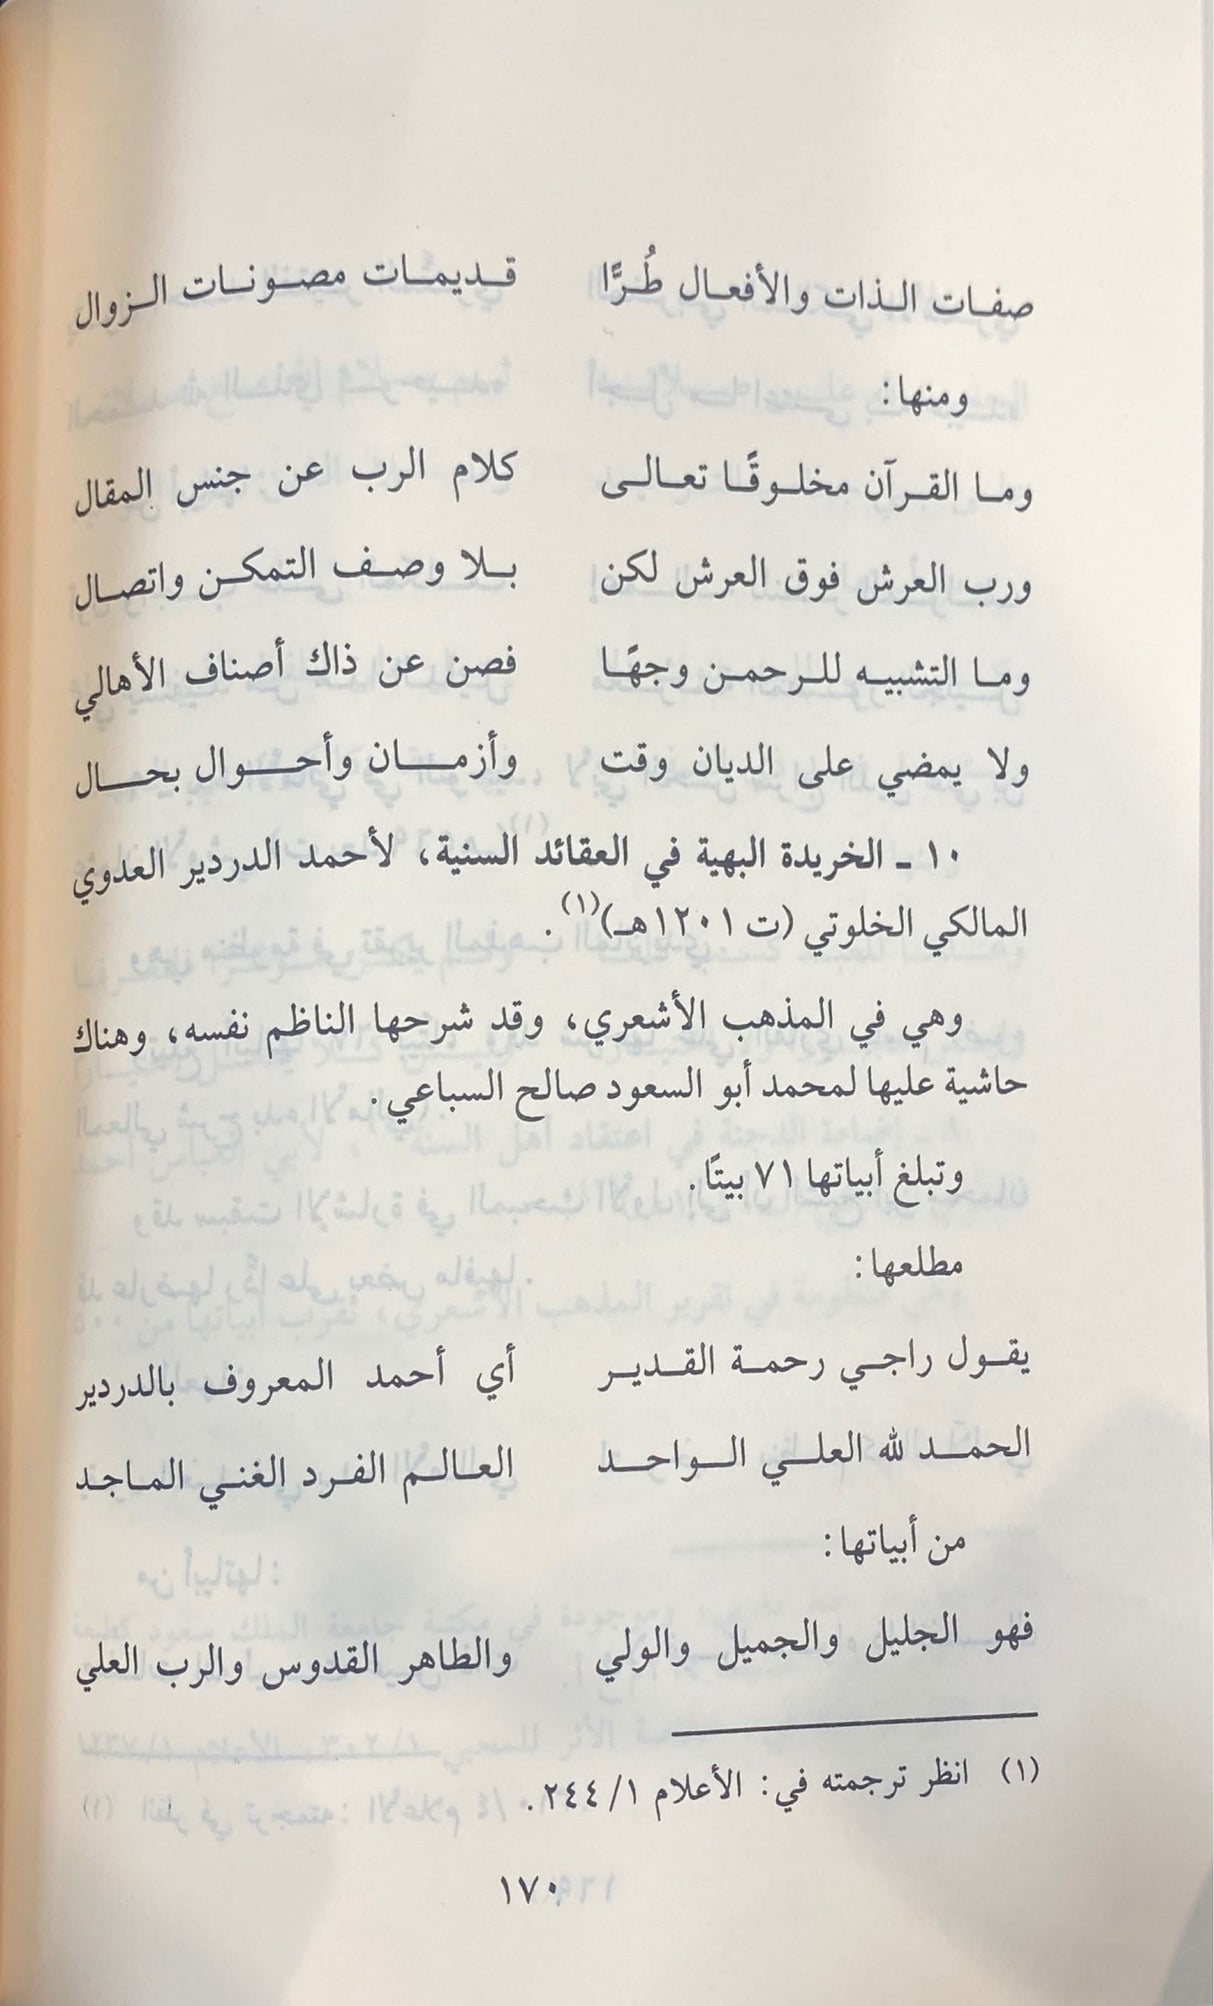 صفات الذات والأفعال طُرًّا قديمات مصونات الزوال
ومنها:
وما القرآن مخلوقًا تعالى كلام الرب عن جنس المقال
ورب العرش فوق العرش لكن بلا وصف التمكن واتصال
وما التشبيه للرحمن وجهًا فصن عن ذاك أصناف الأهالي
ولا يمضي على الديان وقت وأزمان وأحوال بحال
١٠ ـ الخريدة البهية في العقائد السنية، لأحمد الدردير العدوي
المالكي الخلوتي (ت ١٢٠١هـ)(١).
وهي في المذهب الأشعري، وقد شرحها الناظم نفسه، وهناك
حاشية عليها لمحمد أبو السعود صالح السباعي.
وتبلغ أبياتها ٧١ بيتًا.
مطلعها:
يقول راجي رحمة القدير أي أحمد المعروف بالدردير
الحمد لله العلي الواحد العالم الفرد الغني الماجد
من أبياتها:
فهو الجليل والجميل والولي والطاهر القدوس والرب العلي
(١) انظر ترجمته في: الأعلام ١/ ٢٤٤.
١٧٠